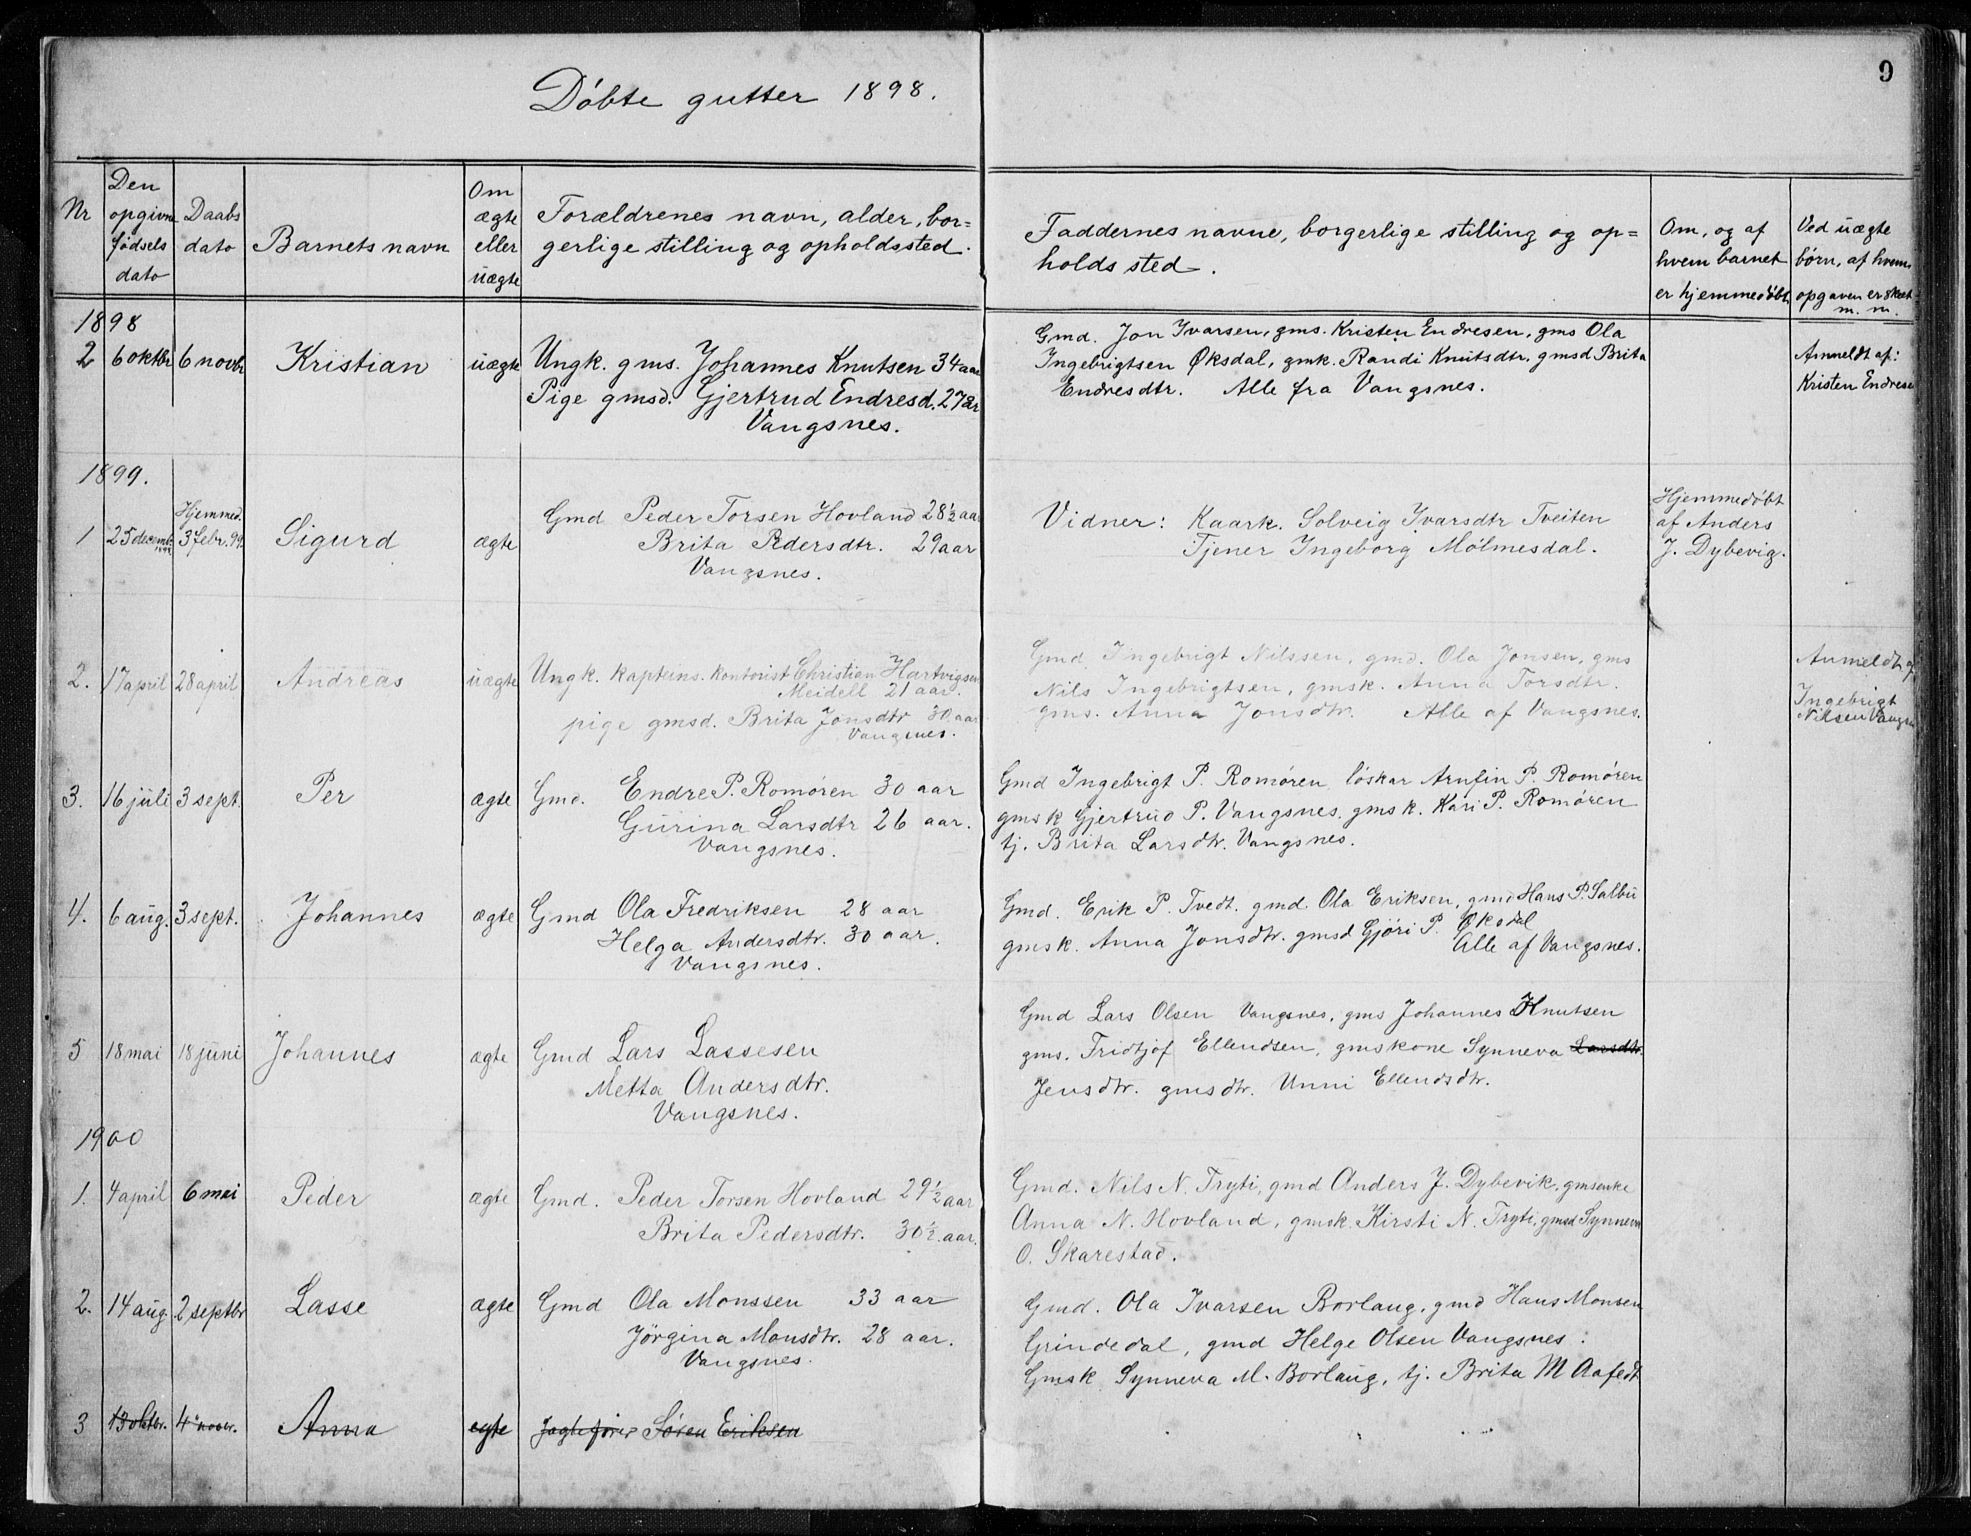 9
Döbte gutter 1898.
Nr
Den opgivne fødsels dato
Daabs dato
Barnets navn
Om ægte eller uægte
Forældrenes navn, alder, bor=
gerlige stilling og opholdssted.
Faddernes navne, borgerlige stilling og op=
holds sted.
Om, og af
hvem barnet
er hjemmedøbt
Ved uægte
børn, af hvem
opgaven er skeet
m. m.
1898
2 6 oktbr 6 novbr Kristian uægte Ungk. gms. Johannes Knutsen 34 aar
Pige gmsd. Gjertrud Endresd. 27 år
Vangsnes.
Gmd. Jon Ivarsen, gms. Kristen Endresen, gms Ola
Ingebrigtsen Øksdal, gmk. Randi Knutsdtr, gmsd Brita
Endresdtr. Alle fra Vangsnes.
Anmeldt af:
Kristen Endresen
1899.
Hjemmed.
1 25 decemb. 1898 3 febr. 99 Sigurd ægte Gmd Peder Torsen Hovland 28½ aar
Brita Pedersdtr. 29 aar
Vangsnes.
Vidner: Kaark. Solveig Ivarsdtr Tveiten
Tjener Ingeborg Mølmesdal.
Hjemmedöbt
af Anders
J. Dybevig.
2. 17 april 28 april Andreas uægte Ungk. kaptens. kontorist Christian Hartvigsen
Meidell 21 aar.
pige gmsd. Brita Jonsdtr 30 aar
Vangsnes.
Gmd. Ingebrigt Nilssen, gmd. Ola Jonsen, gms
Nils Ingebrigtsen, gmsk. Anna Torsdtr.
gms. Anna Jonsdtr. Alle af Vangsnes.
Anmeldt af
Ingebrigt
Nilsen Vangsn
3. 16 juli 3 sept. Per ægte Gmd. Endre P. Romören 30 aar
Gurina Larsdtr 26 aar.
Vangsnes.
Gmd Ingebrigt P. Romören löskar Arnfin P. Romören
gmsk Gjertrud P. Vangsnes. gmsk. Kari P. Romören
tj. Brita Larsdtr. Vangsnes.
4. 6 aug. 3 sept. Johannes ægte Gmd Ola Fredriksen 28 aar
Helga Andersdtr. 30 aar.
Vangsnes.
Gmd. Erik P. Tvedt. gmd. Ola Eriksen, gmd Hans P. Salbu
gmsk. Anna Jonsdtr. gmsd Gjöri P. Øksdal
Alle af Vangsnes.
5 18 mai 18 juni Johannes ægte Gmd Lars Lassesen
Metta Andersdtr.
Vangsnes.
Gmd Lars Olsen Vangsnes, gms Johannes Knutsen
gms. Fridtjof Ellendsen, gmskone Synneva Larsdtr.
Jensdtr. gmsdtr. Unni Ellendsdtr.
1900
1. 4 april 6 mai Peder ægte Gmd. Peder Torsen Hovland 29½ aar
Brita Pedersdtr. 30½ aar.
Gmd. Nils N. Tryti, gmd Anders J. Dybevik, gmsenke
Anna N. Hovland, gmsk. Kirsti N. Tryti, gmsd Synneva
O. Skarestad.
2. 14 aug 2 septbr Lasse ægte Gmd Ola Monssen 33 aar
Jörgina Monsdtr. 28 aar.
Vangsnes.
Gmd. Ola Ivarsen Borlaug, gmd Hans Monsen
Grindedal, gmd Helge Olsen Vangsnes.
Gmsk Synneva M. Borlaug, tj. Brita M Aafedt
3 13 oktbr. 4 novbr. Anna egte Jagtefører Søren Eriksen